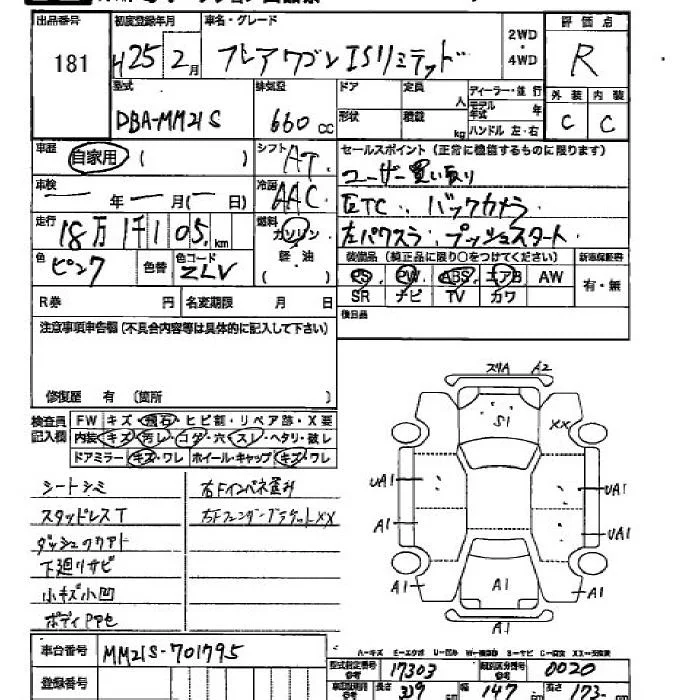 出品番号 初度登録年月 車名・グレード 評価点
181 H25年2月 フレアワゴン ISリミテッド 2WD・4WD R
型式 排気量 ドア 定員 人 ディーラー・並行 外装 内装
DBA-MM21S 660cc 形状 積載 kg モデル年式 年 ハンドル 左・右 C C
車歴 自家用 ( ) シフト AT セールスポイント (正常に機能するものに限ります)
車検 ー年ー月(ー日) 冷房 AAC ユーザー買い取り
ETC. バックカメラ.
走行 18万1千105km 燃料 ガソリン 軽油 ( ) 左パワスラ プッシュスタート
色 ピンク 色替 色コード ZLV 装備品 (純正品に限り○をつけてください) 新車保証書
PS PW ABS エアB AW 有・無
R券 円 名変期限 月 日 SR ナビ TV カワ
注意事項申告欄 (不具合内容等は具体的に記入して下さい) 後日品
修復歴 有 (箇所 )
検査員記入欄 FW キズ・飛石・ヒビ割・リペア跡・X要
内装 キズ・汚レ・コゲ・穴・スレ・ヘタリ・破レ
ドアミラー キズ・ワレ ホイール・キャップ キズ・ワレ
シートシミ 右Fインパネ歪み
スタッドレスT 右FフェンダーブラケットXX
ダッシュクカアト
下廻りサビ
小キズ小凹
ボディPPセ
スリA A2
S1 XX
UA1 UA1
A1 UA1
A1 A1 A1
A1
A-キズ E-エクボ U-凹み W-補修跡 S-サビ C-腐食 XX-交換済
車台番号 MM21S-701795 型式指定番号 参考 17303 類別区分番号 参考 0020
登録番号 長さ 339 幅 147 高さ 173